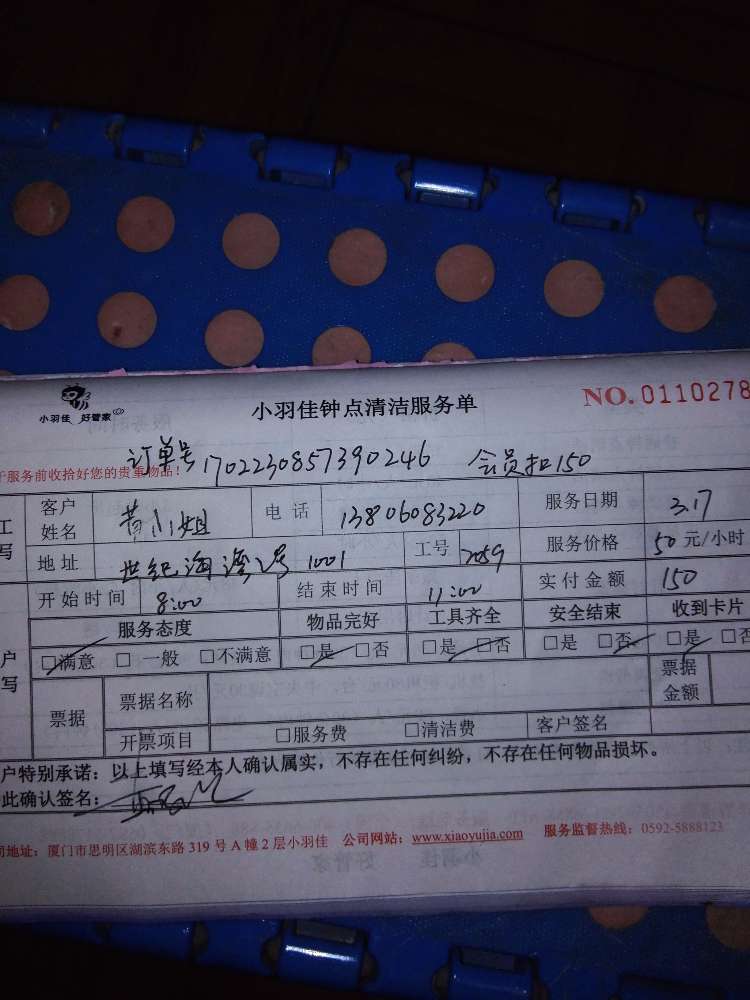 小羽佳 好管家
小羽佳钟点清洁服务单
NO. 0110278
于服务前收拾好您的贵重物品！
订单号 170223085739 0246 会员扣150
工
写
客户姓名 黄小姐 电话 13806083220 服务日期 3.17
地址 世纪海湾 1001 工号 2059 服务价格 50 元/小时
开始时间 8:00 结束时间 11:00 实付金额 150
户
写
服务态度 物品完好 工具齐全 安全结束 收到卡片
□满意 □一般 □不满意 □是 □否 □是 □否 □是 □否 □是 □否
票据 票据名称 票据金额
开票项目 □服务费 □清洁费 客户签名
户特别承诺：以上填写经本人确认属实，不存在任何纠纷，不存在任何物品损坏。
此确认签名：
司地址：厦门市思明区湖滨东路 319 号 A 幢 2 层小羽佳 公司网站：www.xiaoyujia.com 服务监督热线：0592-5888123